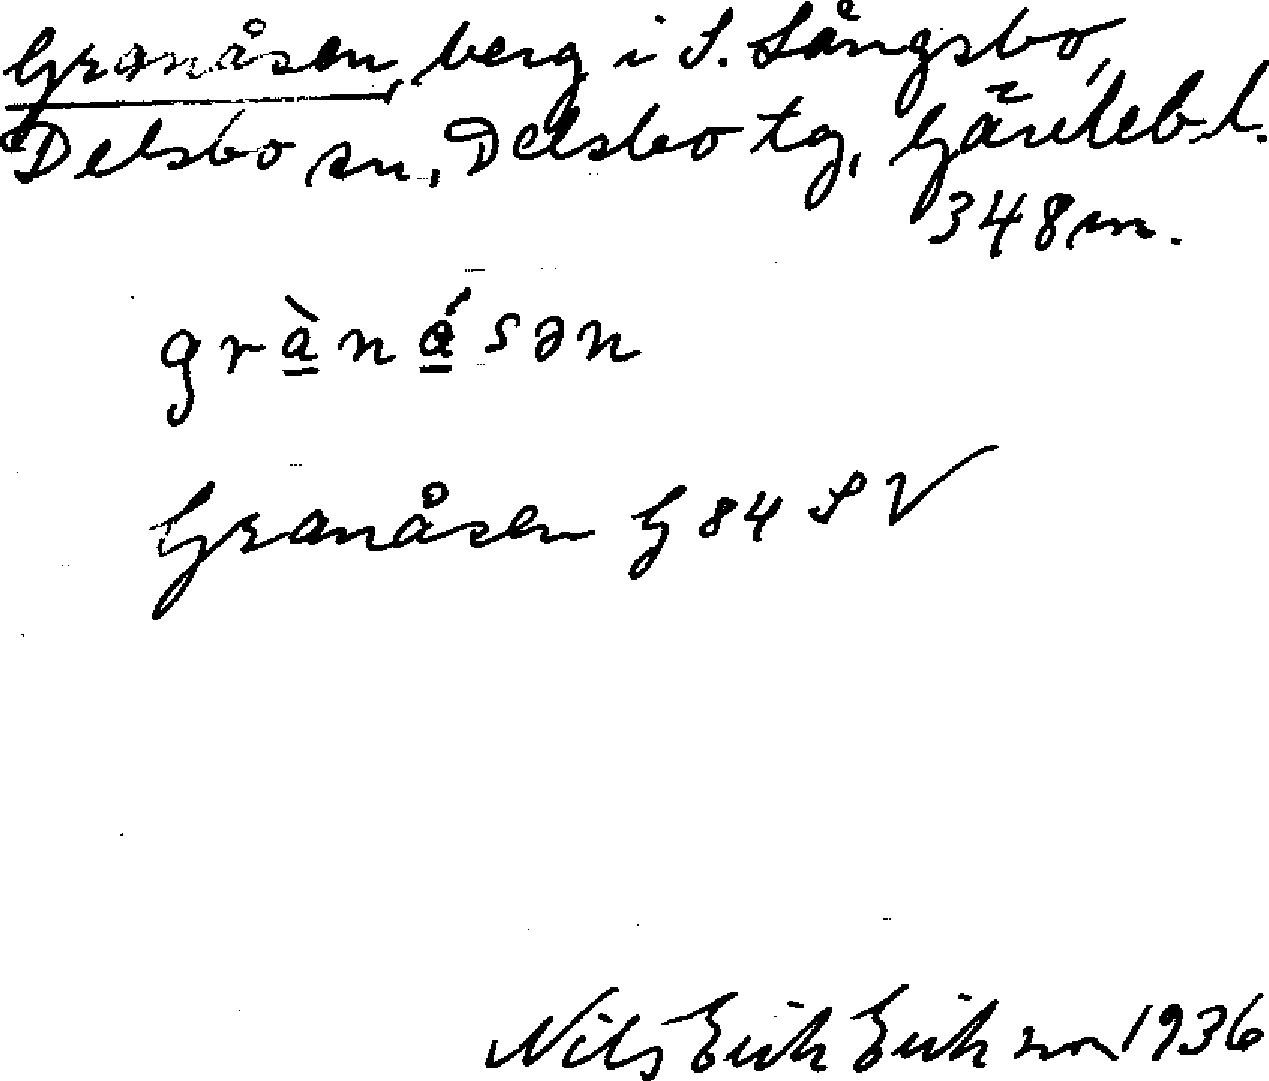 Granåsen, berg i S. Långsbo,
Delsbo sn, Delsbo tg, Gävleb. l.
348 m.
gràná̱sən
Granåsen G 84 SV
Nils Erik Erikson 1936